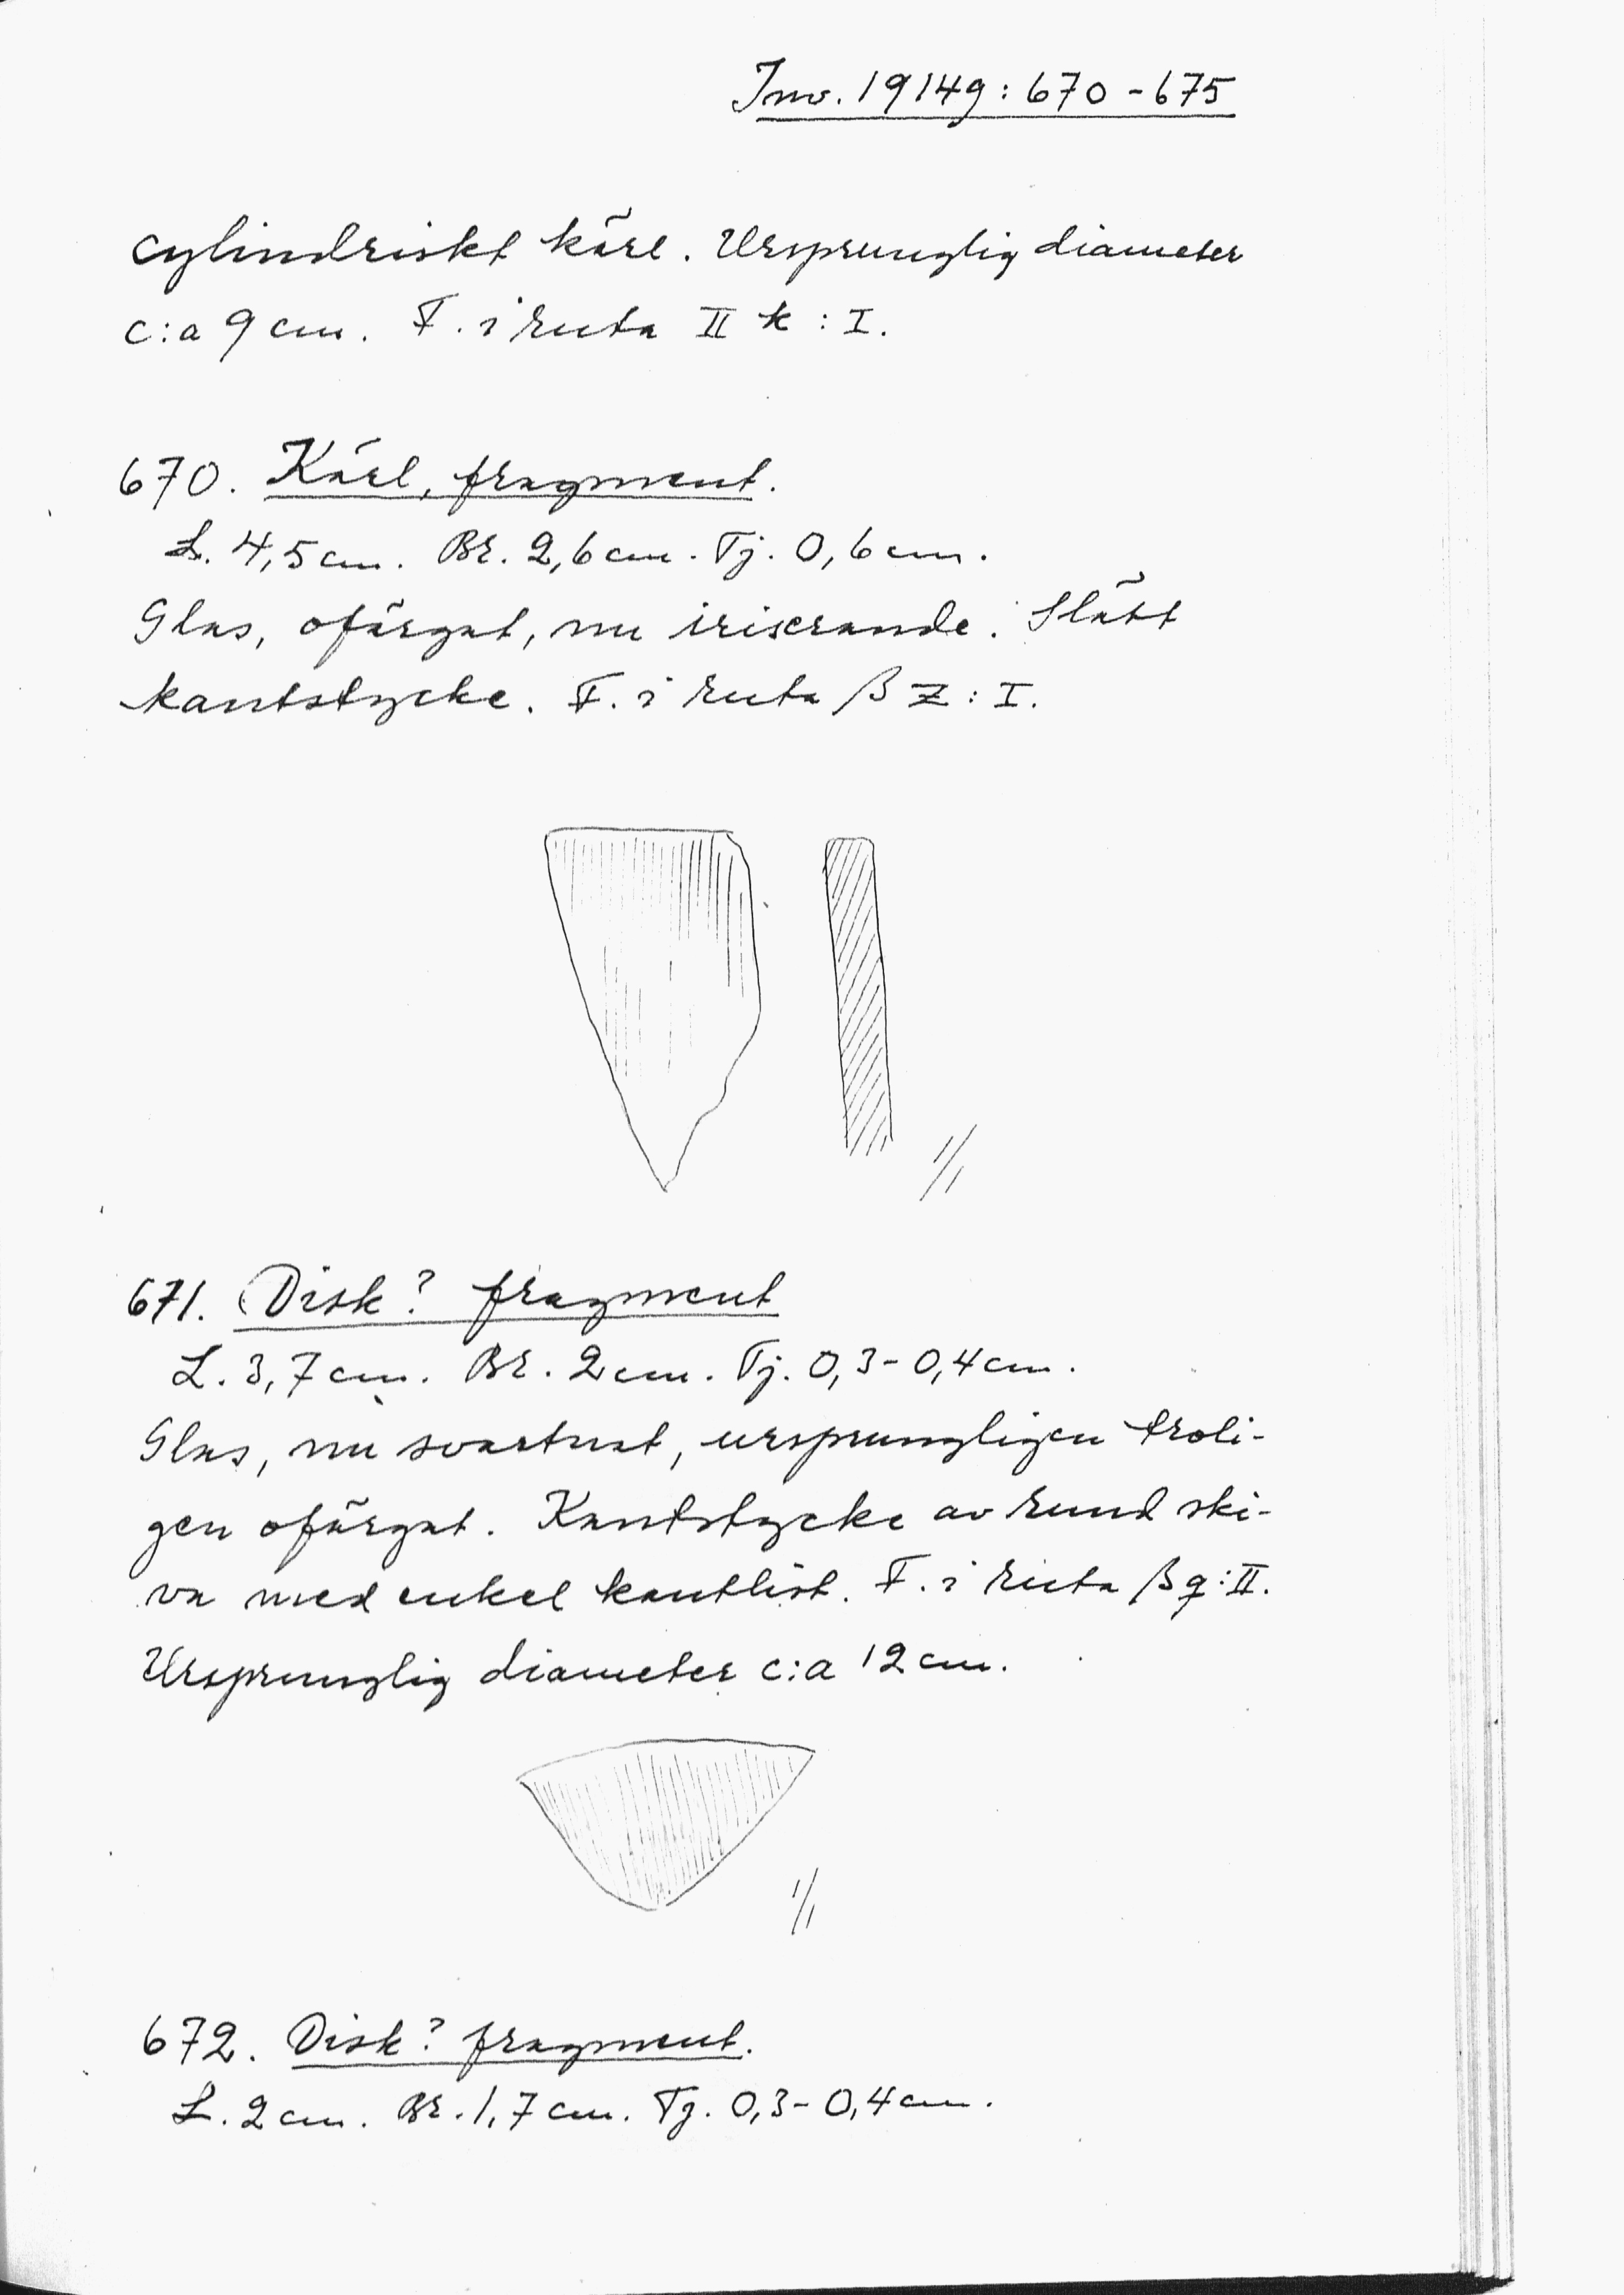 Inv. 19149:670-675
cylindriskt kärl. Ursprunglig diameter
c:a 9 cm. F. i ruta II k : I.
670. Kärl, fragment.
L. 4,5 cm. Br. 2,6 cm. Tj. 0,6 cm.
Glas, ofärgat, nu iriserande. Slätt
kantstycke. F. i ruta β z : I.
1/1
671. Disk? fragment
L. 3,7 cm. Br. 2 cm. Tj. 0,3-0,4 cm.
Glas, nu svartnat, ursprungligen troli-
gen ofärgat. Kantstycke av rund ski-
va med enkel kantlist. F. i ruta β q : II.
Ursprunglig diameter c:a 12 cm.
1/1
672. Disk? fragment.
L. 2 cm. Br. 1,7 cm. Tj. 0,3-0,4 cm.